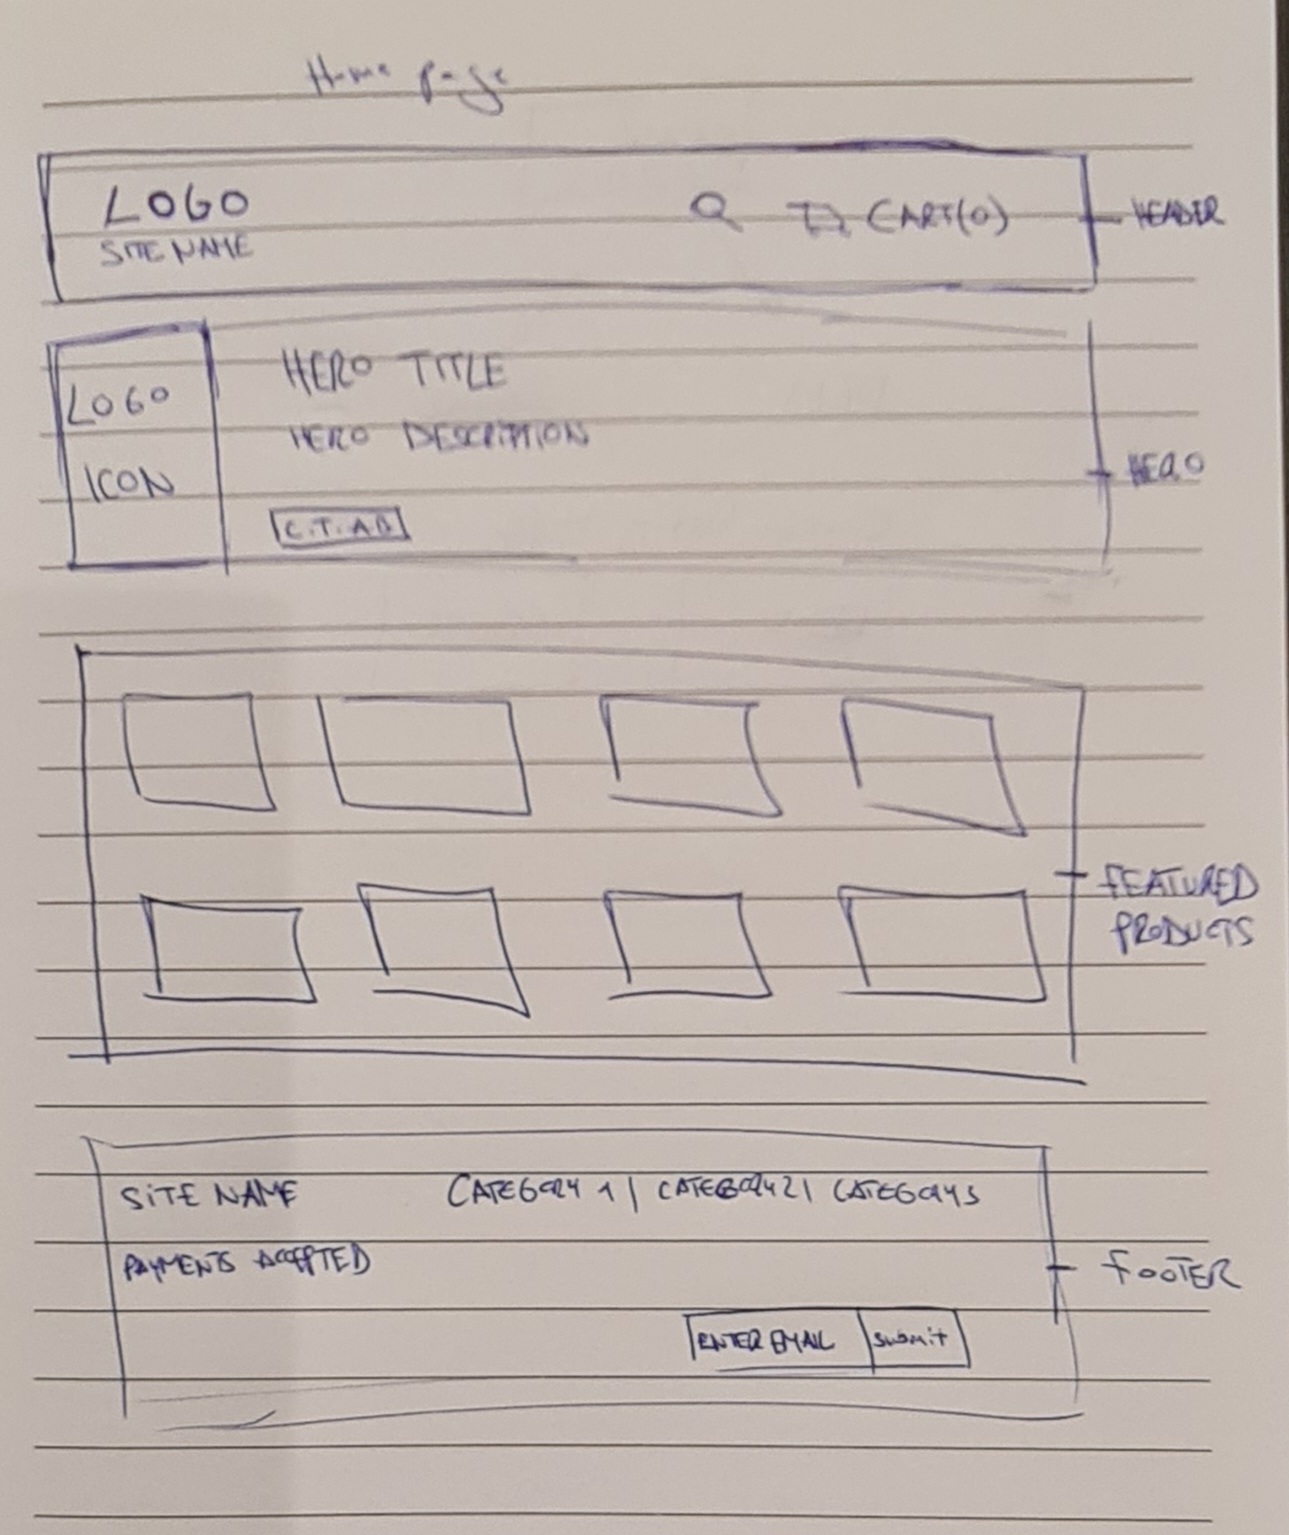 Home page
LOGO
SITE NAME
CART(0)
HEADER
LOGO
ICON
HERO TITLE
HERO DESCRIPTION
C.T.A.B
HERO
FEATURED
PRODUCTS
SITE NAME CATEGORY 1 | CATEGORY 2 | CATEGORY 3
PAYMENTS ACCEPTED
ENTER EMAIL submit
FOOTER